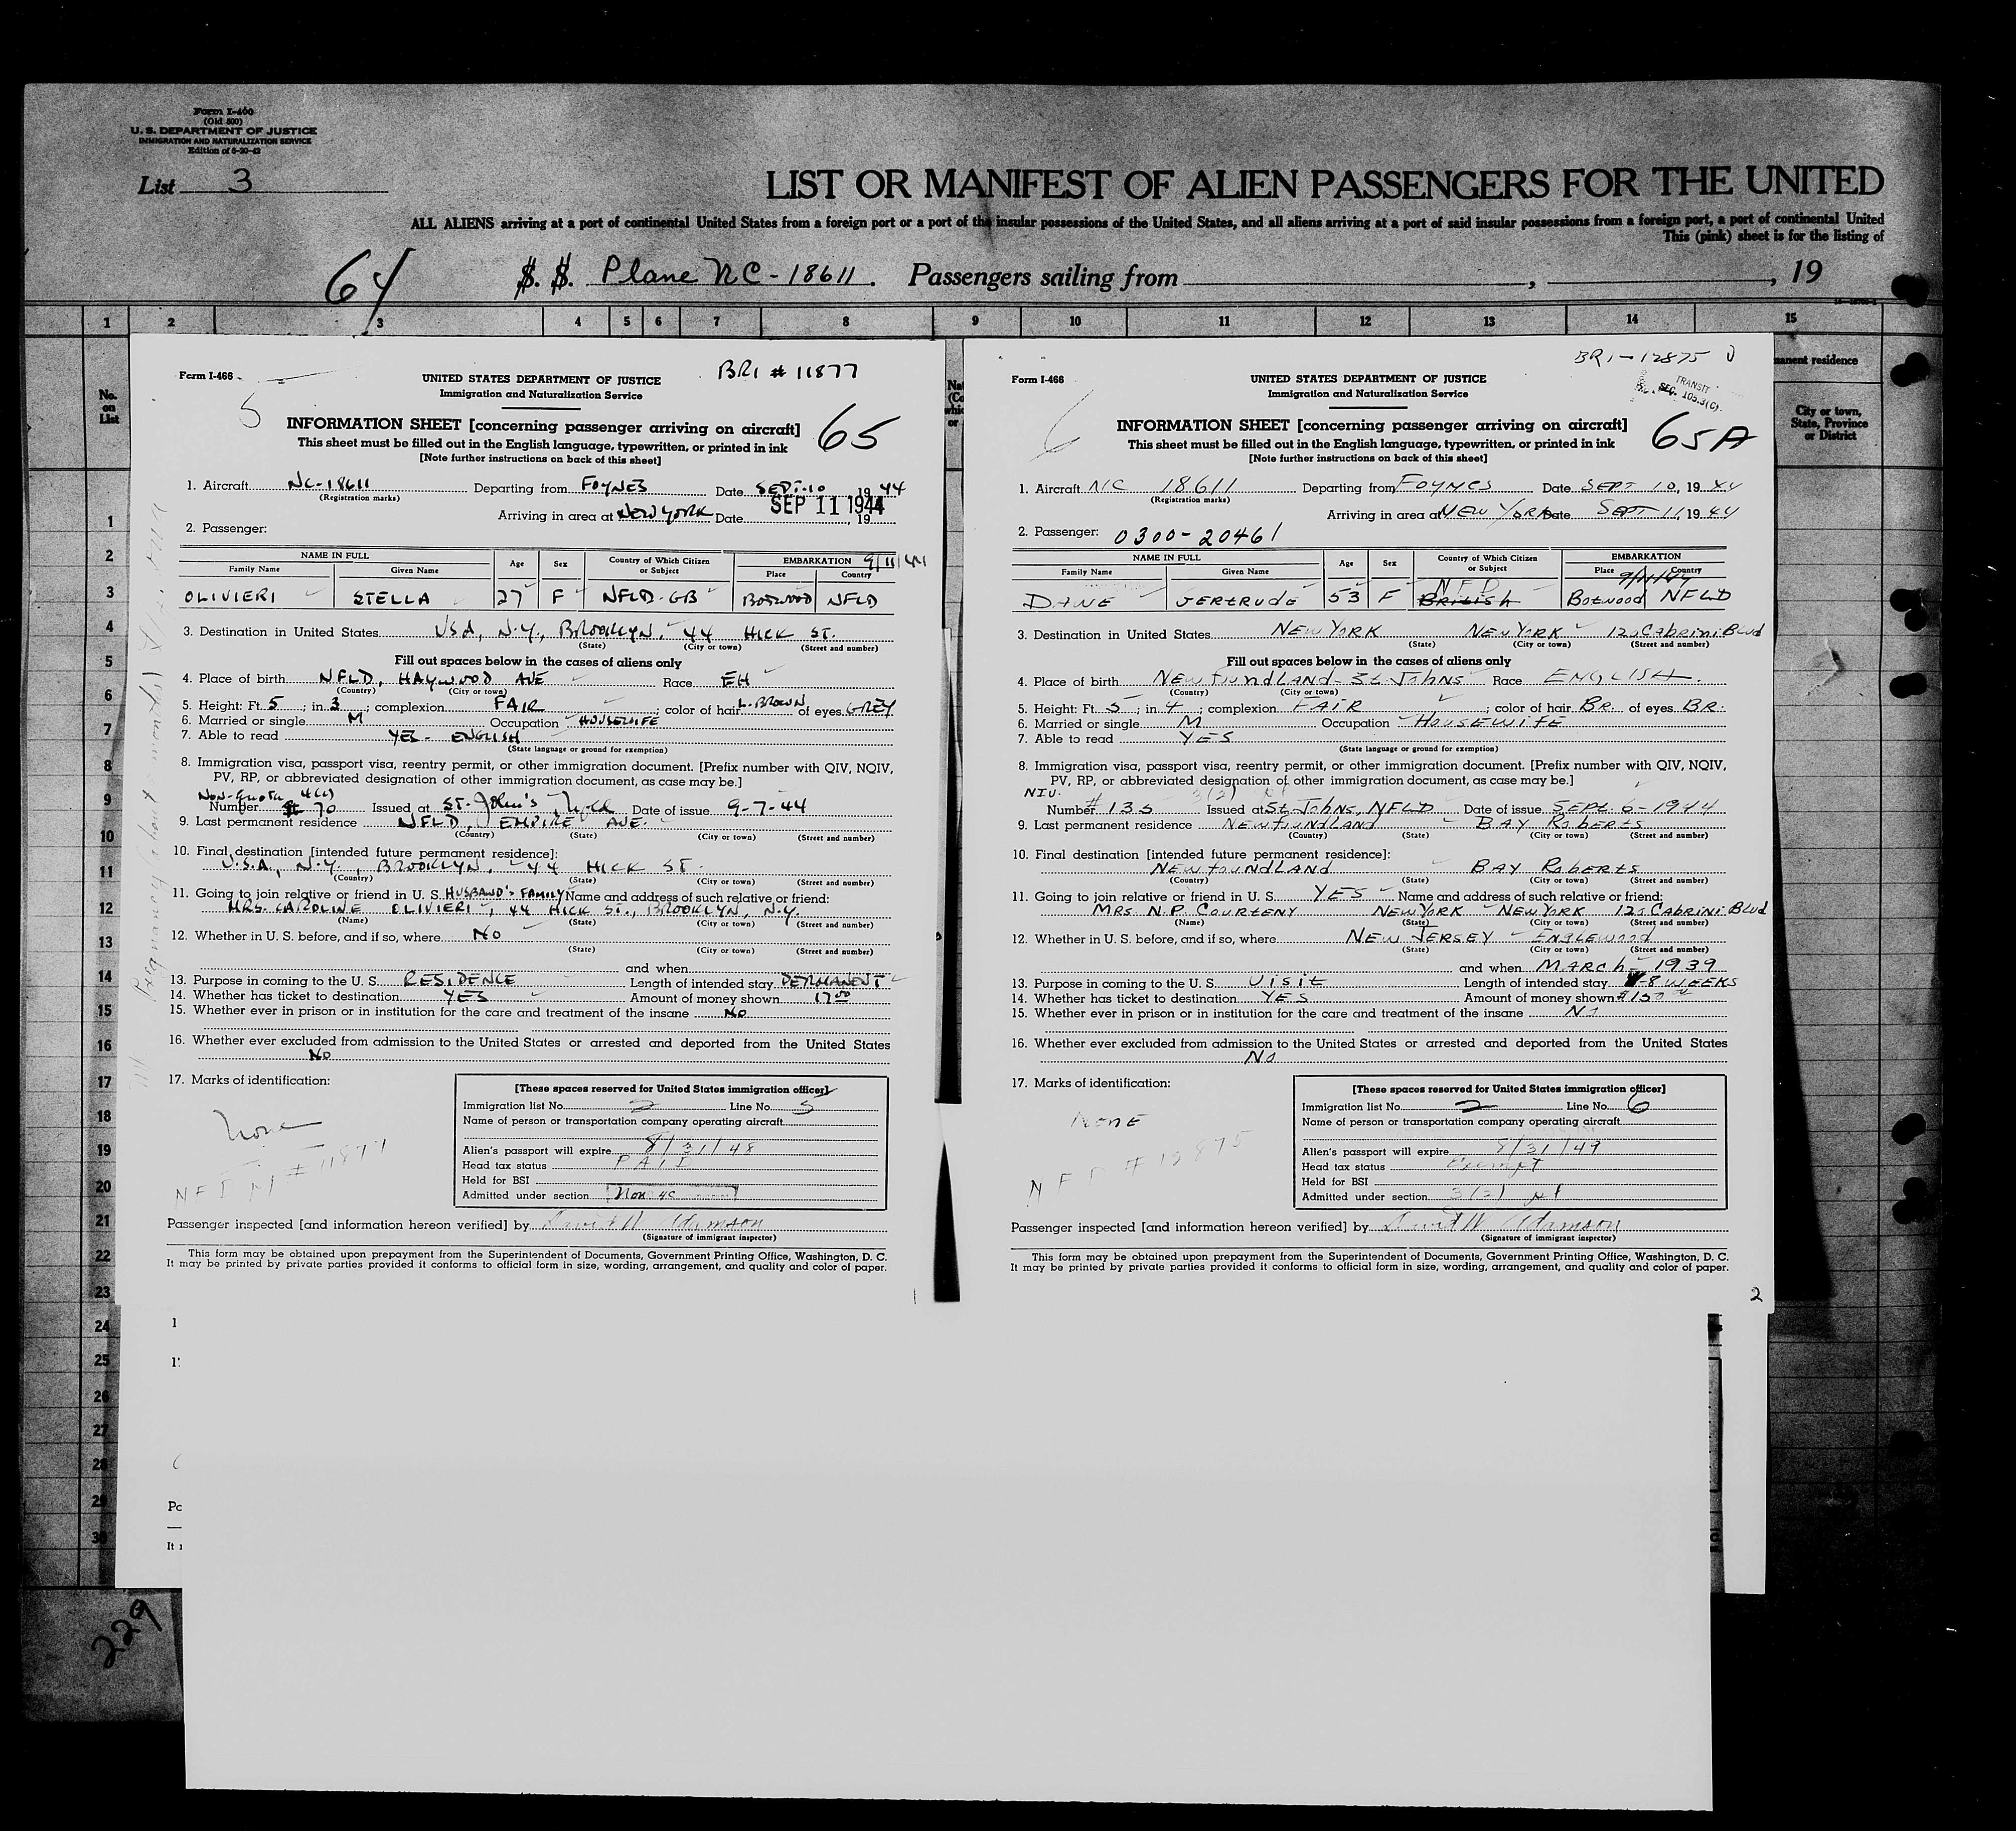 Form I-400
(Old 500)
U. S. DEPARTMENT OF JUSTICE
IMMIGRATION AND NATURALIZATION SERVICE
Edition of 6-20-42
List 3
LIST OR MANIFEST OF ALIEN PASSENGERS FOR THE UNITED
ALL ALIENS arriving at a port of continental United States from a foreign port or a port of the insular possessions of the United States, and all aliens arriving at a port of said insular possessions from a foreign port, a port of continental United
This (pink) sheet is for the listing of
64
S. S. Plane NC-18611. Passengers sailing from , , 19
1 2 3 4 5 6 7 8 9 10 11 12 13 14 15
No. on List
manent residence
City or town, State, Province or District
Form I-466
BRI # 11877
5
UNITED STATES DEPARTMENT OF JUSTICE
Immigration and Naturalization Service
INFORMATION SHEET [concerning passenger arriving on aircraft]
65
This sheet must be filled out in the English language, typewritten, or printed in ink
[Note further instructions on back of this sheet]
1. Aircraft NC-18611 Departing from FOYNES Date SEPT-10 1944
(Registration marks)
SEP 11 1944
Arriving in area at NEW YORK Date , 19
2. Passenger:
NAME IN FULL Age Sex Country of Which Citizen or Subject EMBARKATION 9/11/44
Family Name Given Name Place Country
OLIVIERI STELLA 27 F NFLD-GB BOTWOOD NFLD
3. Destination in United States USA, N.Y., BROOKLYN, 44 HICK ST.
(State) (City or town) (Street and number)
Fill out spaces below in the cases of aliens only
4. Place of birth NFLD, HAYWOOD AVE Race EH
(Country) (City or town)
5. Height: Ft. 5; in 3; complexion FAIR; color of hair L. BROWN of eyes GREY
6. Married or single M Occupation HOUSEWIFE
7. Able to read YES - ENGLISH
(State language or ground for exemption)
8. Immigration visa, passport visa, reentry permit, or other immigration document. [Prefix number with QIV, NQIV,
PV, RP, or abbreviated designation of other immigration document, as case may be.]
Non-Quota 4(c)
Number 70 Issued at St. John's Nfld Date of issue 9-7-44
9. Last permanent residence NFLD, EMPIRE AVE.
(Country) (State) (City or town) (Street and number)
10. Final destination [intended future permanent residence]:
U.S.A., N.Y., BROOKLYN, 44 HICK ST.
(Country) (State) (City or town) (Street and number)
11. Going to join relative or friend in U. S. HUSBAND'S FAMILY Name and address of such relative or friend:
MRS. CAROLINE OLIVIERI, 44 HICK ST., BROOKLYN, N.Y.
(Name) (State) (City or town) (Street and number)
12. Whether in U. S. before, and if so, where NO
(State) (City or town) (Street and number)
and when
13. Purpose in coming to the U. S. RESIDENCE Length of intended stay PERMANENT
14. Whether has ticket to destination YES Amount of money shown 17.00
15. Whether ever in prison or in institution for the care and treatment of the insane NO
16. Whether ever excluded from admission to the United States or arrested and deported from the United States
NO
17. Marks of identification:
None
NFLD # 11877
[These spaces reserved for United States immigration officer]
Immigration list No. 2 Line No. 5
Name of person or transportation company operating aircraft
Alien's passport will expire 8/31/48
Head tax status PAID
Held for BSI
Admitted under section Non 4c
Passenger inspected [and information hereon verified] by David W Adamson
(Signature of immigrant inspector)
This form may be obtained upon prepayment from the Superintendent of Documents, Government Printing Office, Washington, D. C.
It may be printed by private parties provided it conforms to official form in size, wording, arrangement, and quality and color of paper.
1
Form I-466
BRI-12875
TRANSIT
SEC. 105.3(C).
6
UNITED STATES DEPARTMENT OF JUSTICE
Immigration and Naturalization Service
INFORMATION SHEET [concerning passenger arriving on aircraft]
65A
This sheet must be filled out in the English language, typewritten, or printed in ink
[Note further instructions on back of this sheet]
1. Aircraft NC 18611 Departing from FOYNES Date SEPT 10, 1944
(Registration marks)
Arriving in area at NEW YORK Date SEPT 11, 1944
2. Passenger: 0300-20461
NAME IN FULL Age Sex Country of Which Citizen or Subject EMBARKATION
Family Name Given Name Place Country
9/11/44
NFD
DAWE JERTRUDE 53 F British Botwood NFLD
3. Destination in United States NEW YORK NEW YORK 120 Cabrini Blvd
(State) (City or town) (Street and number)
Fill out spaces below in the cases of aliens only
4. Place of birth NEWfoundLAND - St. Johns Race ENGLISH.
(Country) (City or town)
5. Height: Ft. 5; in 4; complexion FAIR; color of hair BR. of eyes BR.
6. Married or single M Occupation HOUSEWIFE
7. Able to read YES
(State language or ground for exemption)
8. Immigration visa, passport visa, reentry permit, or other immigration document. [Prefix number with QIV, NQIV,
PV, RP, or abbreviated designation of other immigration document, as case may be.]
NIV. 3(2)
Number # 135 Issued at St. Johns, NFLD Date of issue SEPt. 6-1944
9. Last permanent residence NEWfoundLAND BAY RobERtS
(Country) (State) (City or town) (Street and number)
10. Final destination [intended future permanent residence]:
NEWfoundLAND BAY RobERtS
(Country) (State) (City or town) (Street and number)
11. Going to join relative or friend in U. S. YES Name and address of such relative or friend:
MRS. N.P. COURTENY NEW YORK NEW YORK 120 Cabrini Blvd
(Name) (State) (City or town) (Street and number)
12. Whether in U. S. before, and if so, where NEW JERSEY Englewood
(State) (City or town) (Street and number)
and when MARCh - 1939
13. Purpose in coming to the U. S. Visit Length of intended stay 8 WEEKS
14. Whether has ticket to destination YES Amount of money shown $150
15. Whether ever in prison or in institution for the care and treatment of the insane No
16. Whether ever excluded from admission to the United States or arrested and deported from the United States
No
17. Marks of identification:
NONE
NFD # 12875
[These spaces reserved for United States immigration officer]
Immigration list No. 2 Line No. 6
Name of person or transportation company operating aircraft
Alien's passport will expire 8/31/49
Head tax status Exempt
Held for BSI
Admitted under section 3(2)
Passenger inspected [and information hereon verified] by David W Adamson
(Signature of immigrant inspector)
This form may be obtained upon prepayment from the Superintendent of Documents, Government Printing Office, Washington, D. C.
It may be printed by private parties provided it conforms to official form in size, wording, arrangement, and quality and color of paper.
2
1
2
3
4
5
6
7
8
9
10
11
12
13
14
15
16
17
18
19
20
21
22
23
24
25
26
27
28
29
30
229